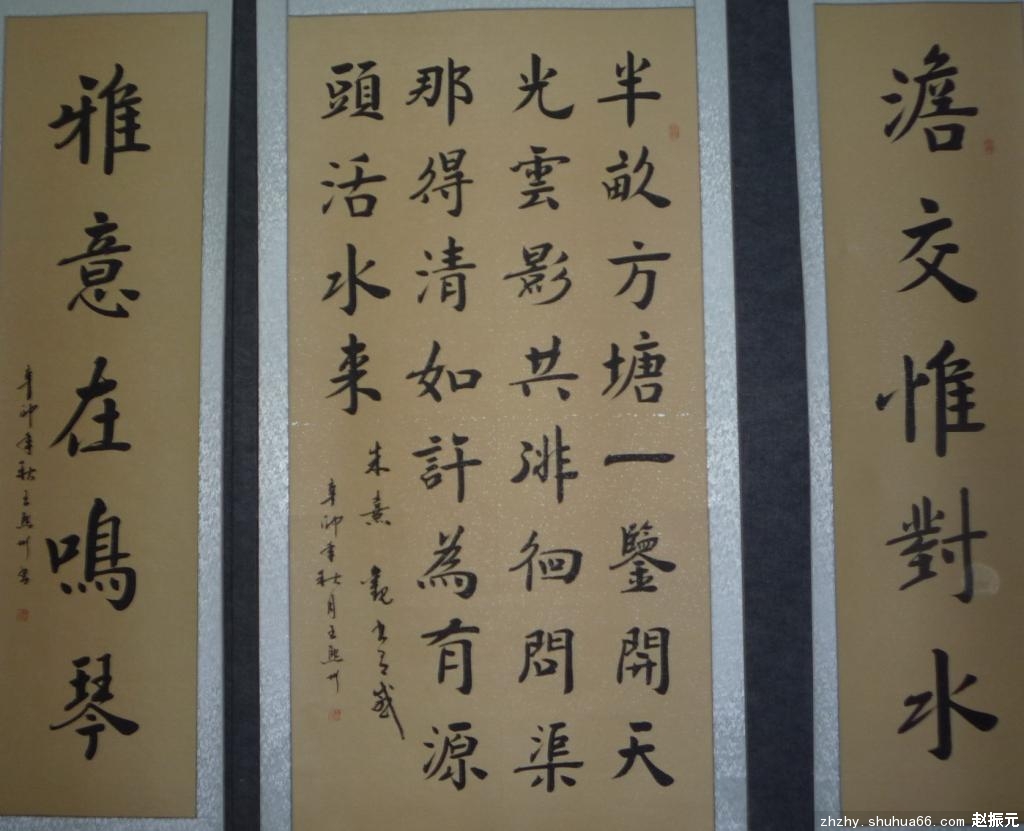 澹交惟對水
半畝方塘一鑒開天
光雲影共徘徊問渠
那得清如許為有源
頭活水来
朱熹觀書有感
辛卯年秋月王熙州
雅意在鳴琴
辛卯年秋王熙州書
zhzhy.shuhua66.com 赵振元